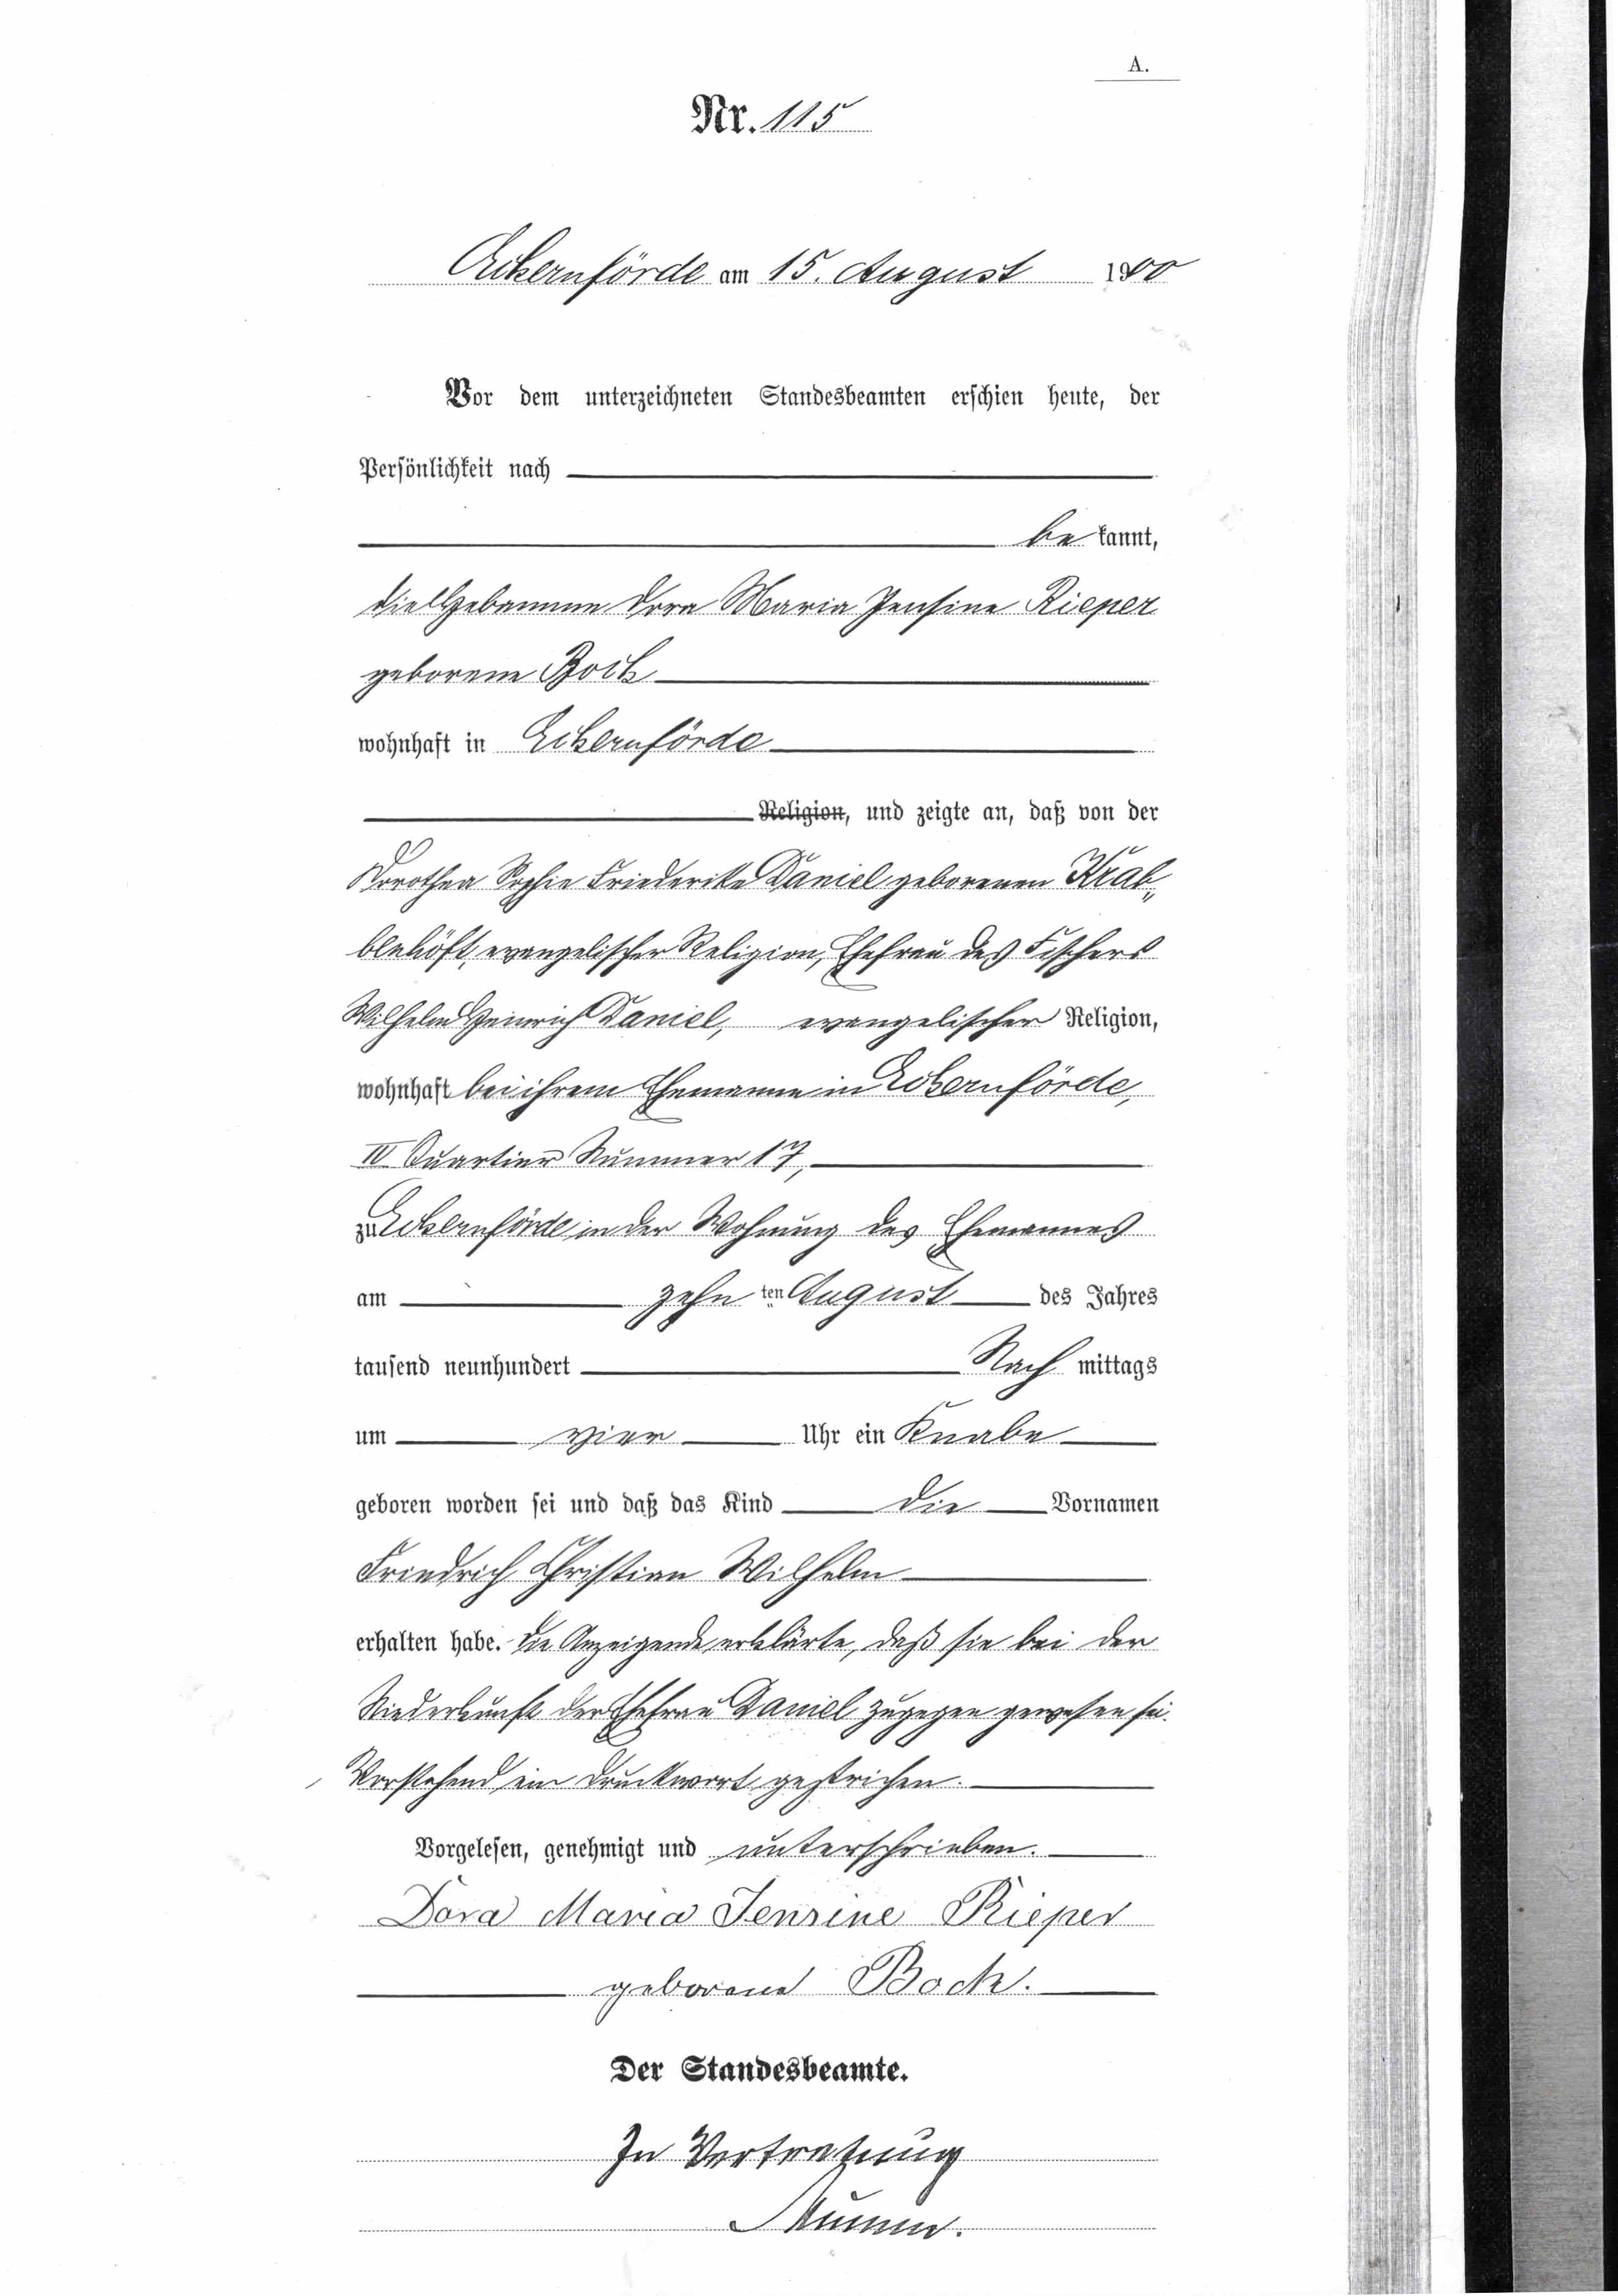 A.
Nr. 115
Eckernförde am 15. August 1900
Vor dem unterzeichneten Standesbeamten erschien heute, der
Persönlichkeit nach
be kannt,
die Hebamme Dora Maria Jensine Rieper
geborene Bock
wohnhaft in Eckernförde
Religion, und zeigte an, daß von der
Dorothea Sophie Friederike Daniel geborenen Krab„
belhöft, evangelischer Religion, Ehefrau des Fischers
Wilhelm Heinrich Daniel, evangelischer Religion,
wohnhaft bei ihrem Ehemanne in Eckernförde,
IV Quartier Nummer 17,
zu Eckernförde in der Wohnung des Ehemannes
am zehn ten August des Jahres
tausend neunhundert Nach mittags
um vier Uhr ein Knabe
geboren worden sei und daß das Kind die Vornamen
Friedrich Christian Wilhelm
erhalten habe. Die Anzeigende erklärte, daß sie bei der
Niederkunft der Ehefrau Daniel zugegen gewesen sei.
Vorstehend ein Druckwort gestrichen.
Vorgelesen, genehmigt und unterschrieben.
Dora Maria Jensine Rieper
geborene Bock.
Der Standesbeamte.
In Vertretung
Mumm.